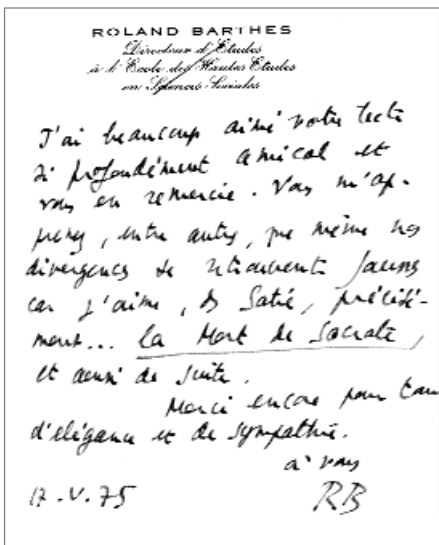 ROLAND BARTHES
Directeur d'Etudes
à l'Ecole des Hautes Etudes
en Sciences Sociales
J'ai beaucoup aimé votre texte
si profondément amical et
vous en remercie. Vous m'ap-
prenez, entre autres, que même nos
divergences se retrouvent
car j'aime, de Satie, précisé-
ment... la Mort de Socrate,
et ainsi de suite.
Merci encore pour tant
d'élégance et de sympathie.
à vous
17.V.75 RB